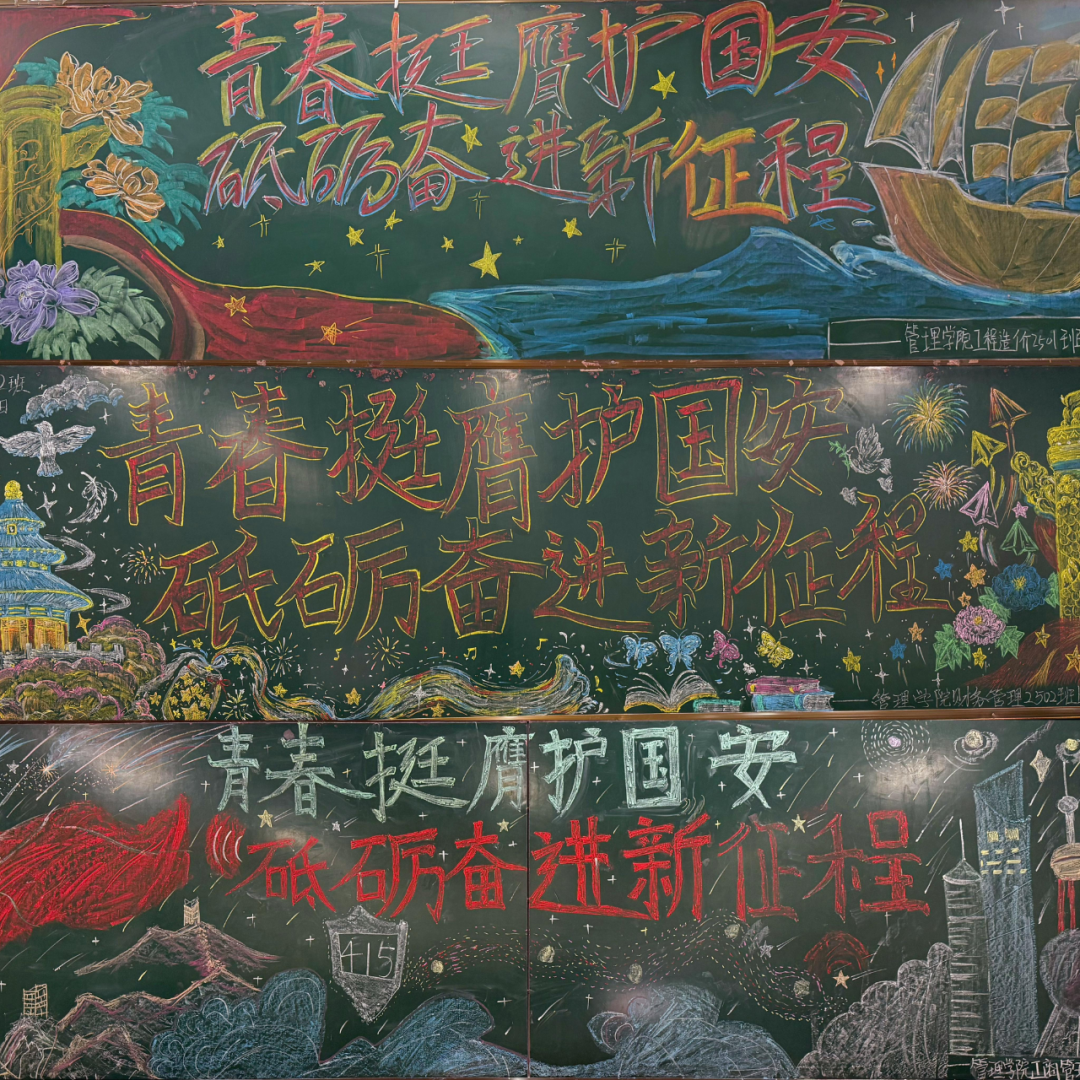 青春挺膺护国安
砥砺奋进新征程
管理学院工程造价2501班
班
青春挺膺护国安
砥砺奋进新征程
管理学院财务管理2502班
青春挺膺护国安
砥砺奋进新征程
415
管理学院工商管